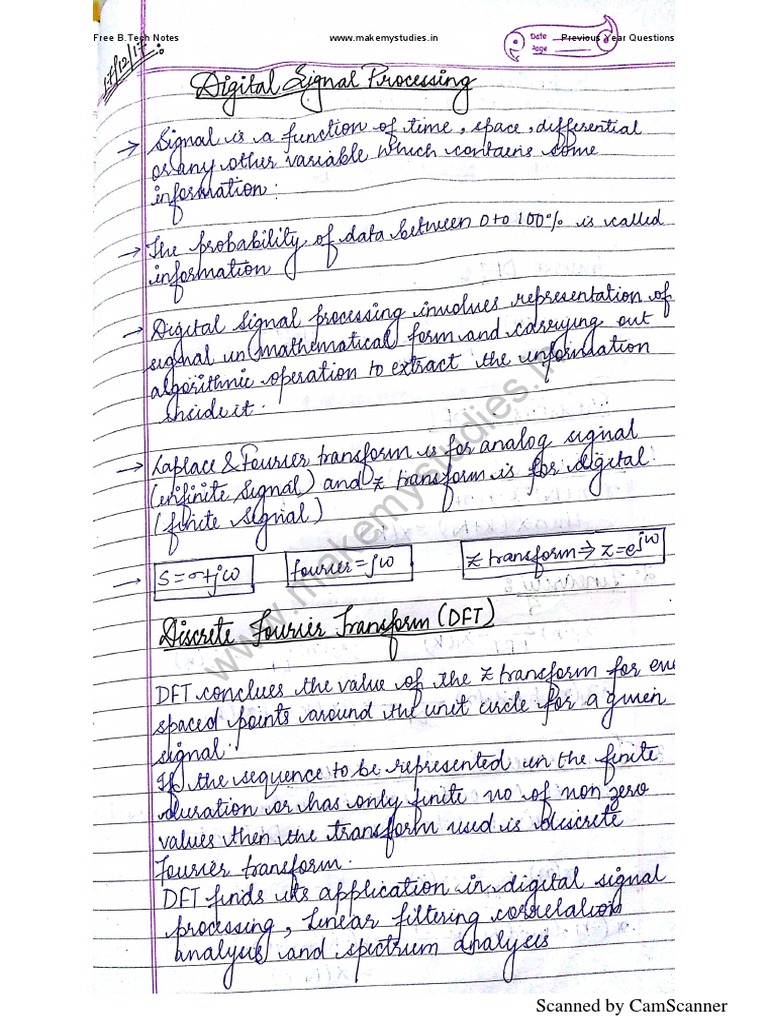 Free B.Tech Notes www.makemystudies.in Previous Year Questions
Date
Page
17/12/17
Digital Signal Processing
→ Signal is a function of time, space, differential
or any other variable which contains some
information.
→ The probability of data between 0 to 100% is called
information
→ Digital signal processing involves representation of
signal in mathematical form and carrying out
algorithmic operation to extract the information
incide it.
→ Laplace & Fourier transform is for analog signal
(infinite signal) and z transform is for digital
(finite signal)
→ S = σ+jω fourier = jω z transform ⇒ z = e^jω
Discrete Fourier Transform (DFT)
DFT conclues the value of the z transform for
spaced points around the unit circle for a given
signal.
If the sequence to be represented in the finite
duration or has only finite no of non zero
values then the transform used is discrete
fourier transform.
DFT finds its application in digital signal
processing, linear filtering correlation
analysis and spectrum analysis
www.makemystudies.in
Scanned by CamScanner